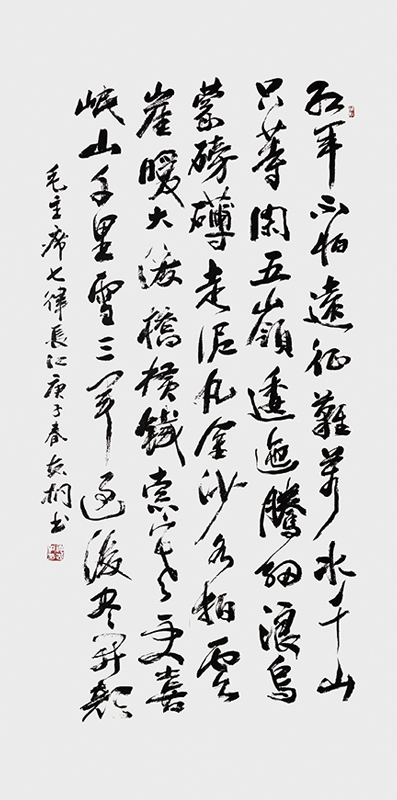 红军不怕遠征難萬水千山
只等闲五嶺逶迤騰細浪烏
蒙磅礴走泥丸金沙水拍雲
崖暖大渡橋橫鐵索寒更喜
岷山千里雪三军过後尽开颜
毛主席七律長征庚子春桐书